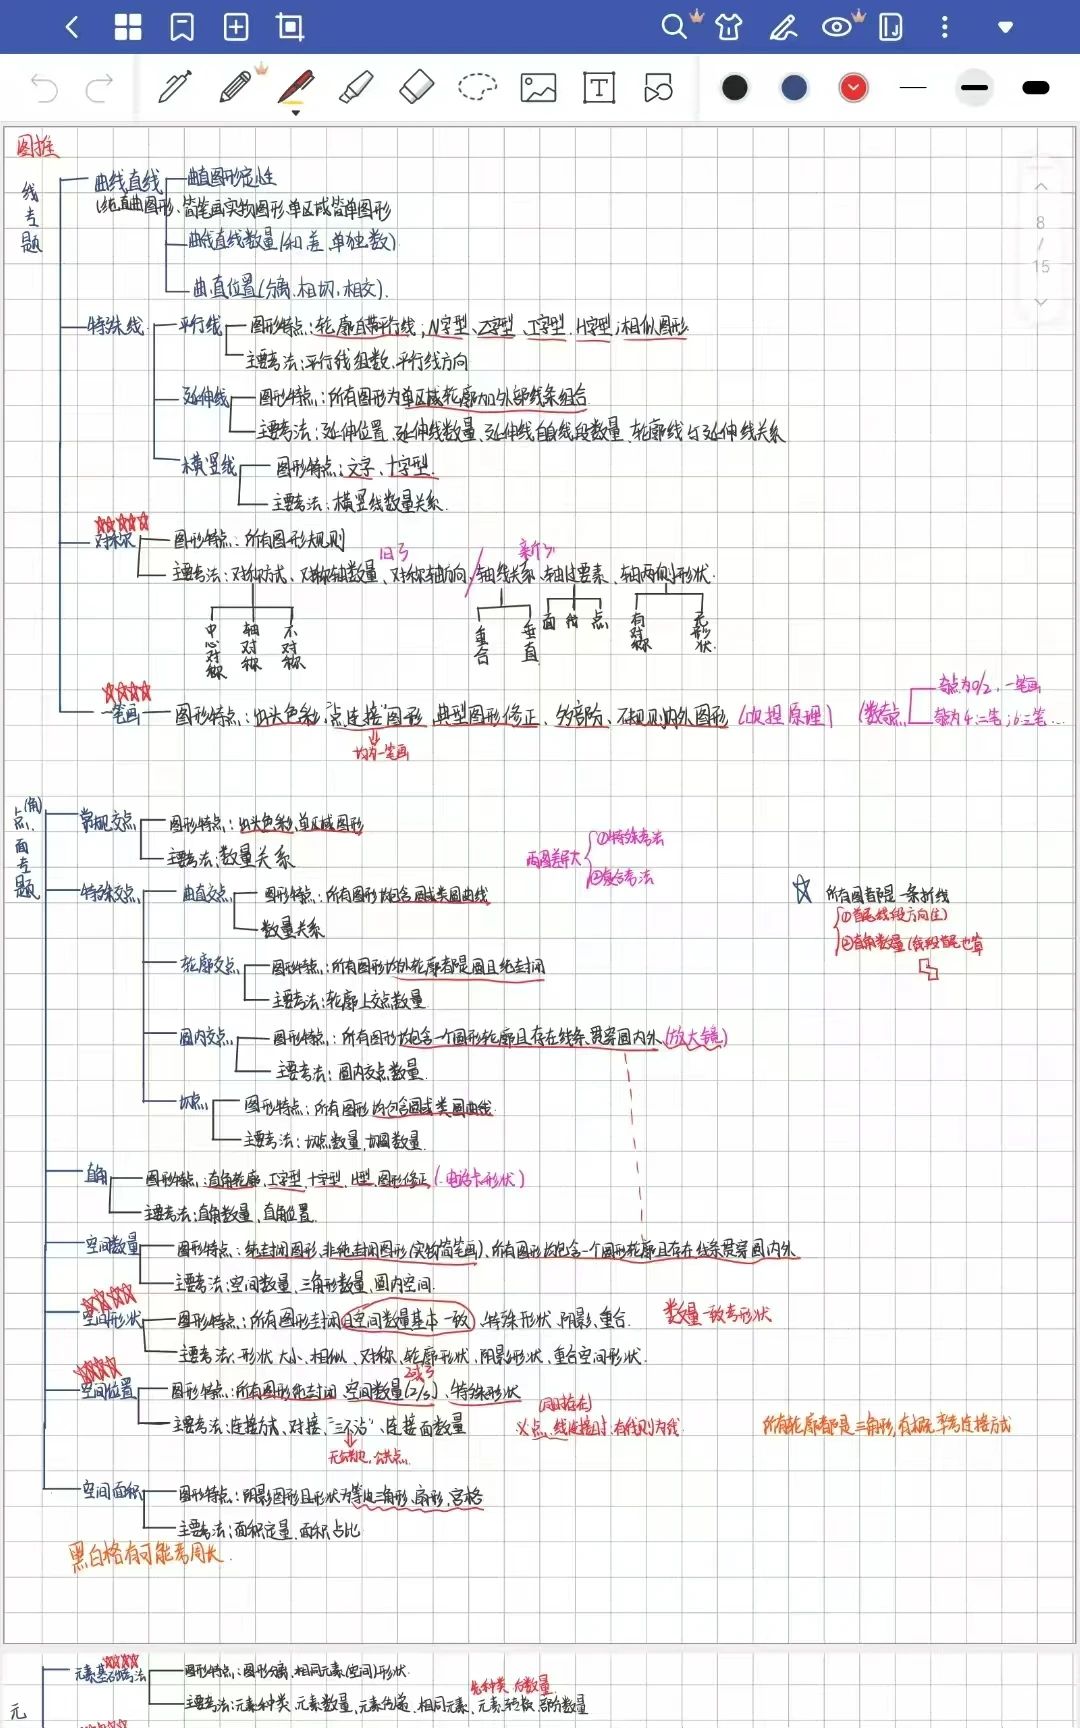 图推
线专题
曲线直线
曲直图形定性
(纯直曲图形、简笔画实物图形、单区域简单图形
曲线直线数量(和、差、单独数)
曲直位置(分离、相切、相交)
特殊线
平行线
图形特点:轮廓自带平行线;N字型、Z字型、工字型、H字型;相似图形
主要考法:平行线组数、平行线方向
延伸线
图形特点:所有图形为单区域轮廓加外部线条组合
主要考法:延伸位置、延伸线数量、延伸线自身线段数量、轮廓线与延伸线关系
横竖线
图形特点:文字、十字型
主要考法:横竖线数量关系
对称
图形特点:所有图形规则
旧考
新考
主要考法:对称方式、对称轴数量、对称轴方向、轴线关系、轴过要素、轴两侧形状
中心对称
轴对称
不对称
重合
垂直
面
线
点
有对称
无形状
一笔画
图形特点:出头色彩、“点连接”图形、典型图形修正、多部分、不规则内外图形(吹捏原理)
(数奇点
奇点为0/2,一笔画
奇为4:二笔;6:三笔...
均为一笔画
点(角)、面专题
常规交点
图形特点:出头色彩、单区域图形
主要考法:数量关系
两图差异大
①特殊考法
②复合考法
特殊交点
曲直交点
图形特点:所有图形均包含圆或类圆曲线
数量关系
所有图都是一条折线
①首尾线段方向(主)
②直角数量(线段首尾也算
轮廓交点
图形特点:所有图形均外轮廓都是圆且纯封闭
主要考法:轮廓上交点数量
圆内交点
图形特点:所有图形均包含一个圆形轮廓且存在线条贯穿圆内外(放大镜)
主要考法:圆内交点数量
切点
图形特点:所有图形均包含圆或类圆曲线
主要考法:切点数量、切圆数量
直角
图形特点:直角轮廓、工字型、十字型、H型、图形修正(电话卡形状)
主要考法:直角数量、直角位置
空间数量
图形特点:纯封闭图形、非纯封闭图形(实物简笔画)、所有图形均包含一个圆形轮廓且存在线条贯穿圆内外
主要考法:空间数量、三角形数量、圆内空间
空间形状
图形特点:所有图形封闭且空间数量基本一致、特殊形状、阴影、重合
数量一致考形状
主要考法:形状、大小、相似、对称、轮廓形状、阴影形状、重合空间形状
空间位置
2或3
图形特点:所有图形纯封闭、空间数量(2/3)、特殊形状
主要考法:连接方式、对接、“三不沾”、连接面数量
(同时存在)
※点、线连接时,有线则为线
所有轮廓都是三角形,有概率考连接方式
无公共边,公共点
空间面积
图形特点:阴影图形且形状为等边三角形、扇形、宫格
主要考法:面积定量、面积占比
黑白格有可能考周长
元
元素基础考法
图形特点:图形分离、相同元素(空间)形状
先种类后数量
主要考法:元素种类、元素数量、元素传递、相同元素、元素转换、部分数量
8
/
15